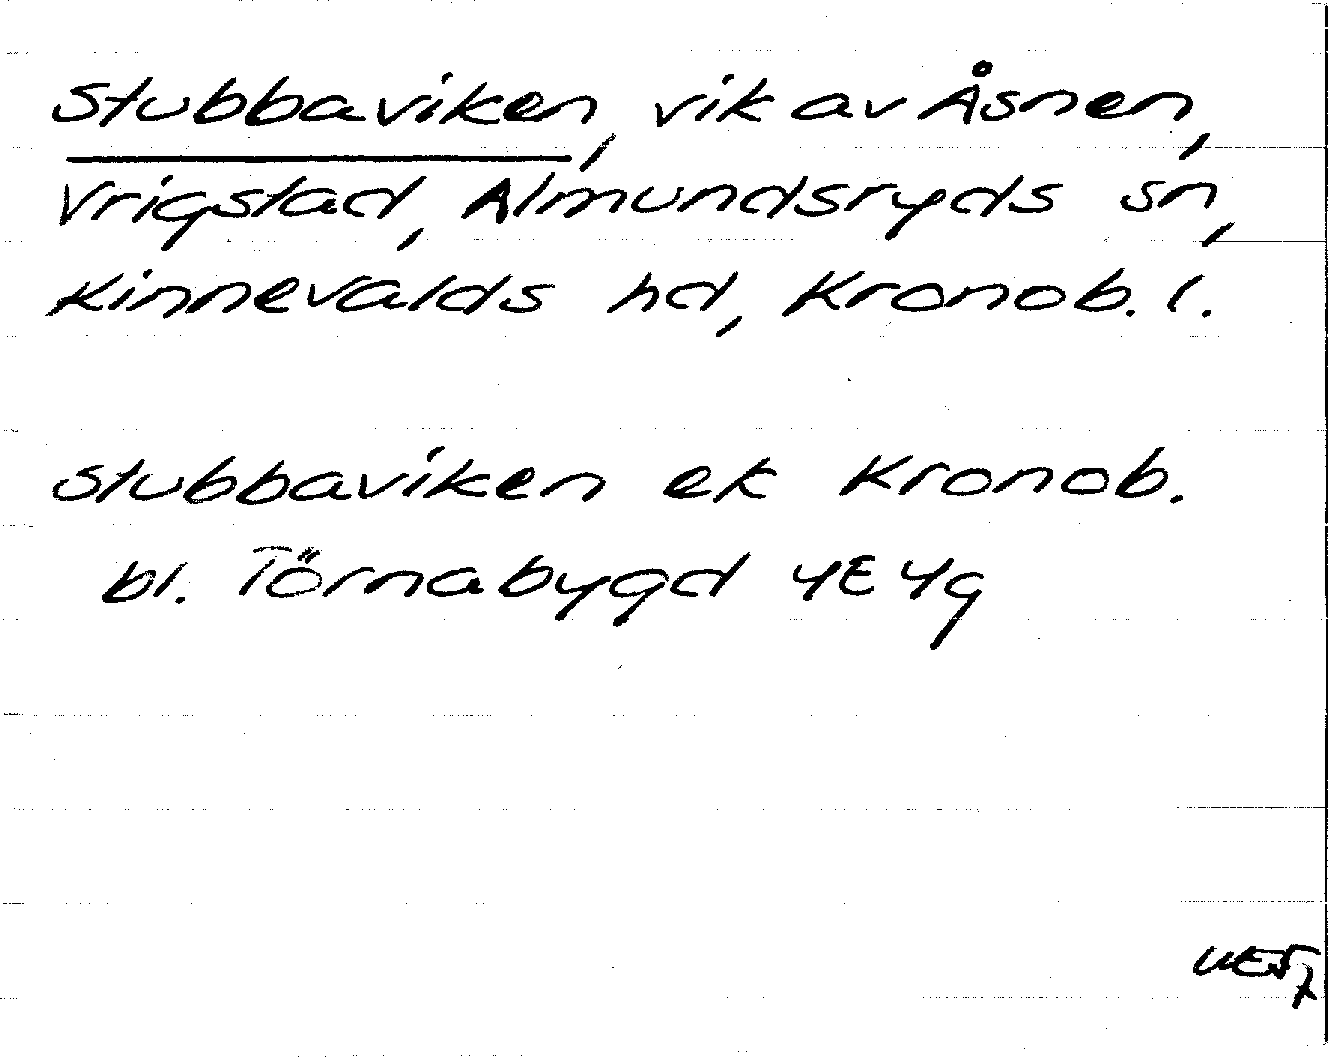 Stubbaviken, vik av Åsnen,
Vrigstad, Almundsryds sn,
Kinnevalds hd, Kronob. l.
Stubbaviken ek Kronob.
bl. Törnabygd 4E 4g